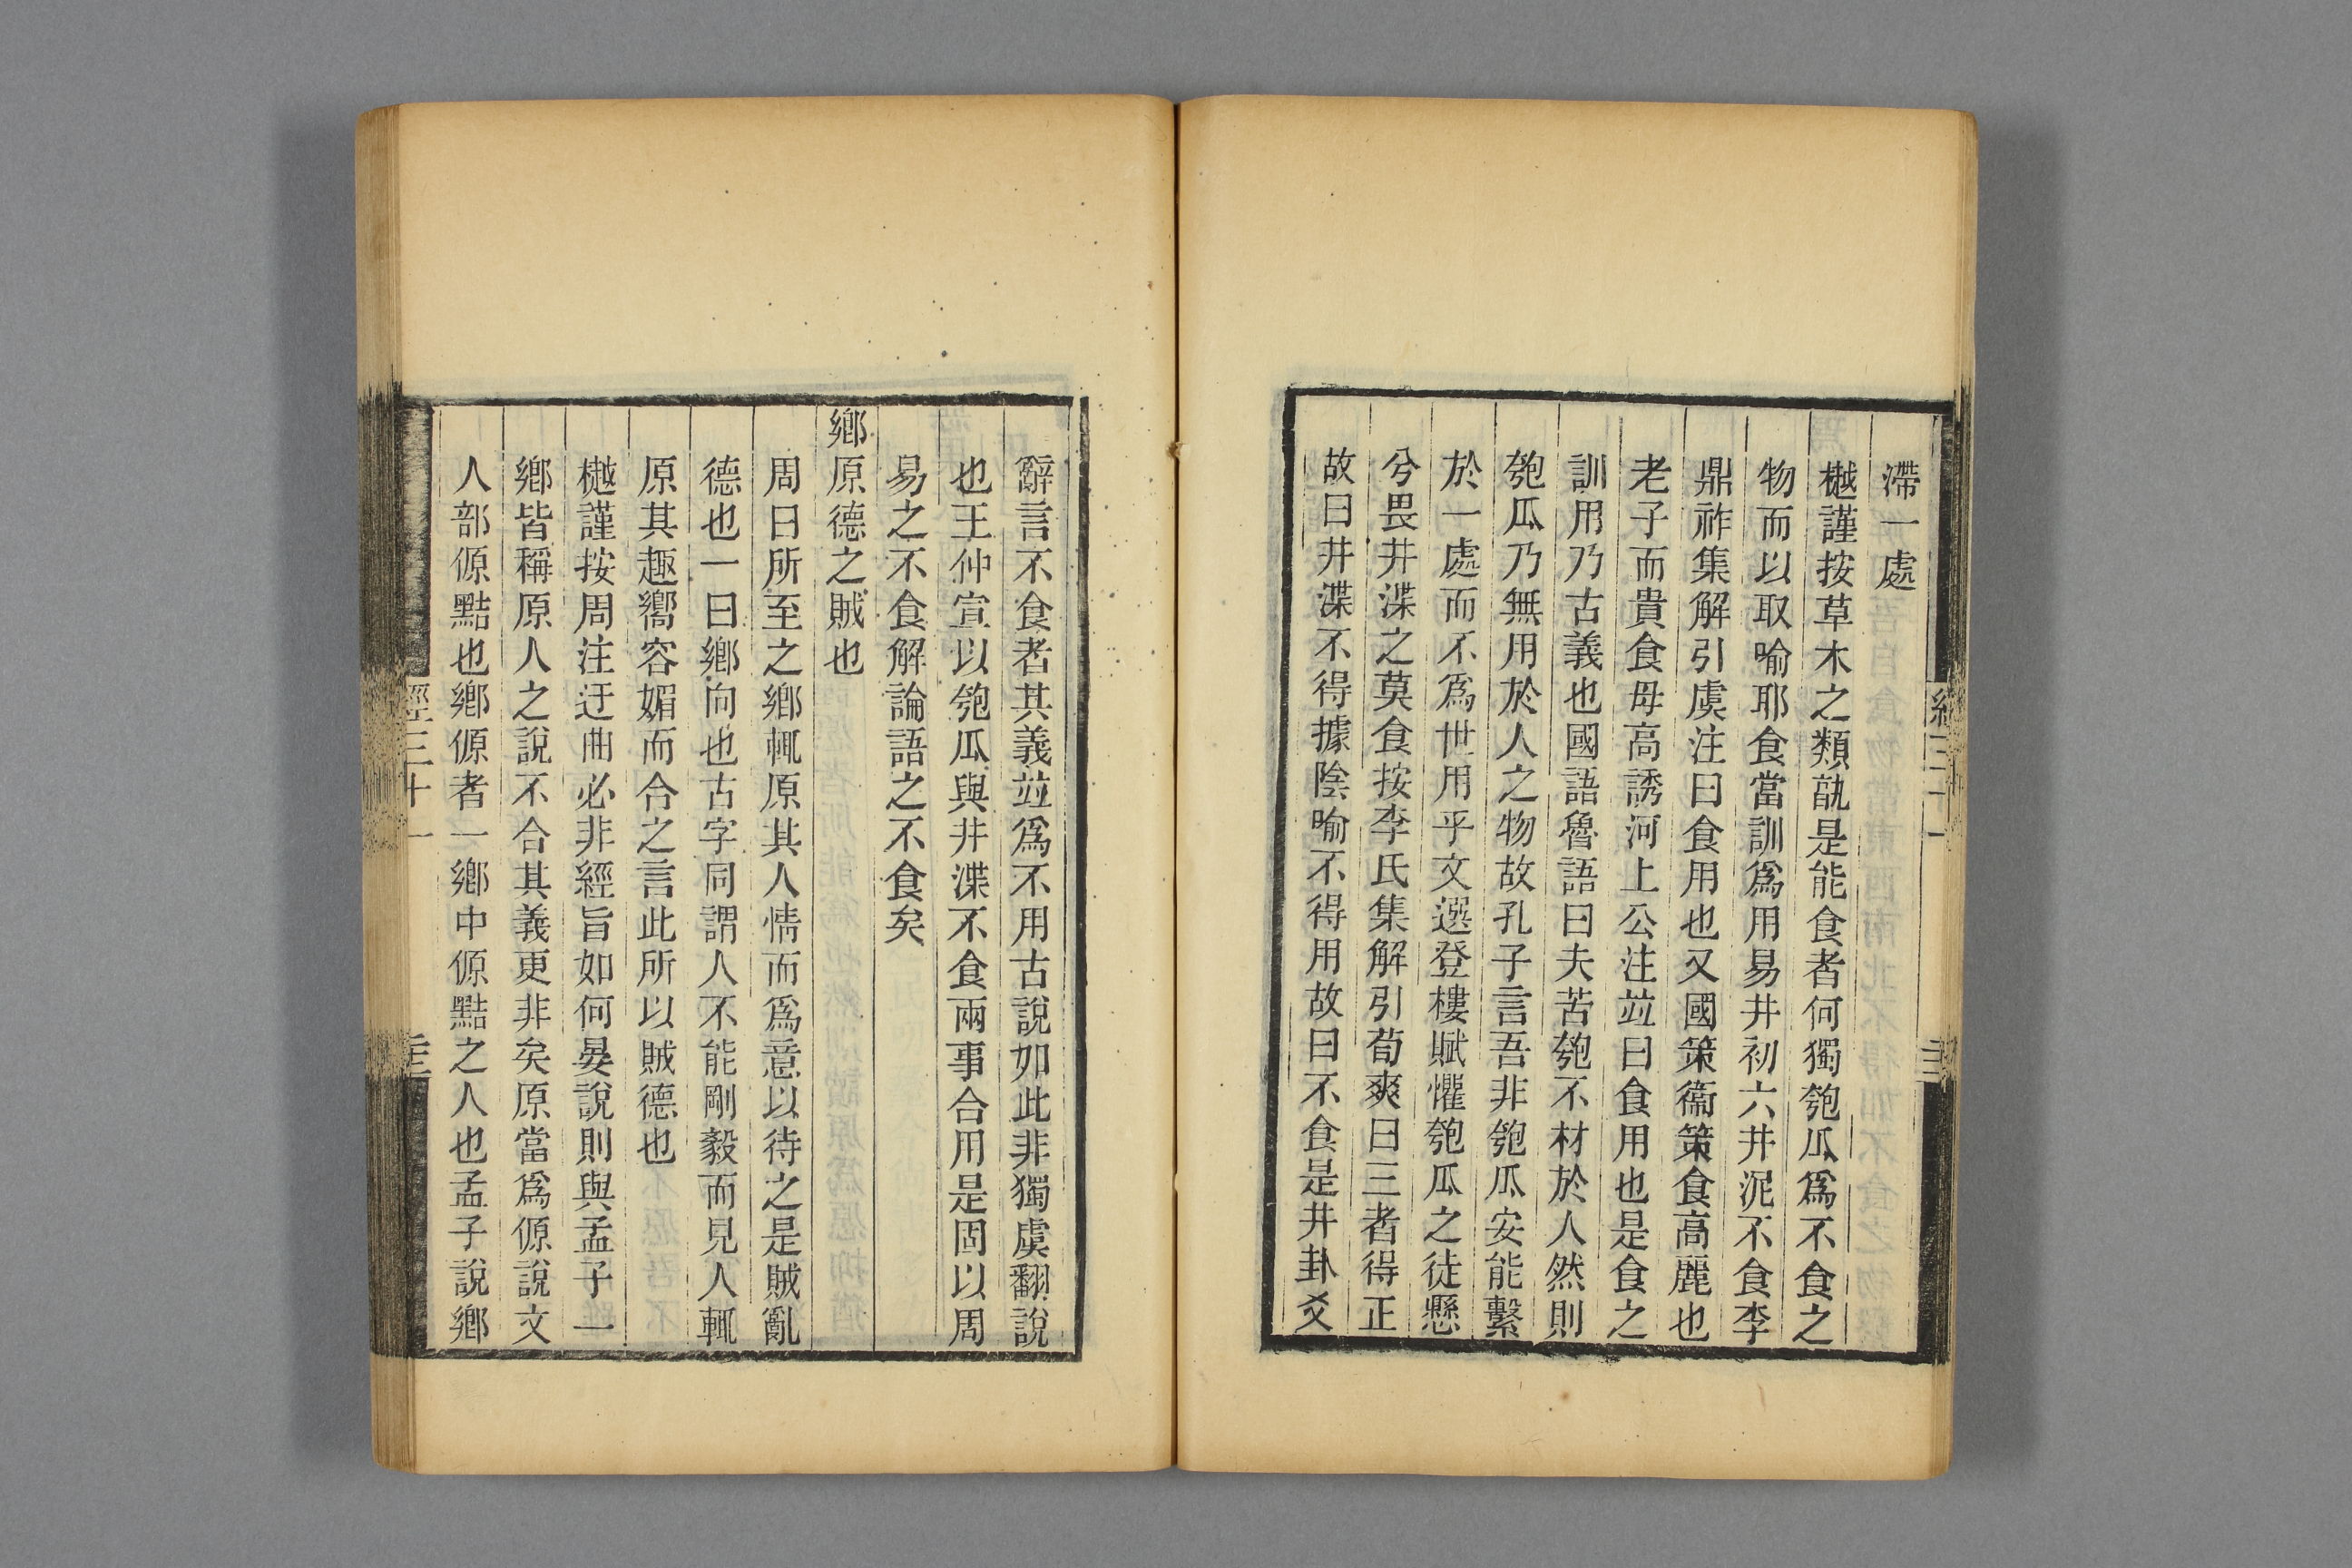 滯一處
樾謹按草木之類孰是能食者何獨匏瓜爲不食之
物而以取喻耶食當訓爲用易井初六井泥不食李
鼎祚集解引虞注曰食用也又國策衞策食高麗也
老子而貴食母高誘河上公注竝曰食用也是食之
訓用乃古義也國語魯語曰夫苦匏不材於人然則
匏瓜乃無用於人之物故孔子言吾非匏瓜安能繫
於一處而不爲世用乎文選登樓賦懼匏瓜之徒懸
兮畏井渫之莫食按李氏集解引荀爽曰三者得正
故曰井渫不得據陰喻不得用故曰不食是井卦爻
辭言不食者其義竝爲不用古說如此非獨虞翻說
也王仲宣以匏瓜與井渫不食兩事合用是固以周
易之不食解論語之不食矣
鄉原德之賊也
周曰所至之鄉輒原其人情而爲意以待之是賊亂
德也一曰鄉向也古字同謂人不能剛毅而見人輒
原其趣嚮容媚而合之言此所以賊德也
樾謹按周注迂曲必非經旨如何晏說則與孟子一
鄉皆稱原人之說不合其義更非矣原當爲傆說文
人部傆黠也鄉傆者一鄉中傆黠之人也孟子說鄉
經三十一